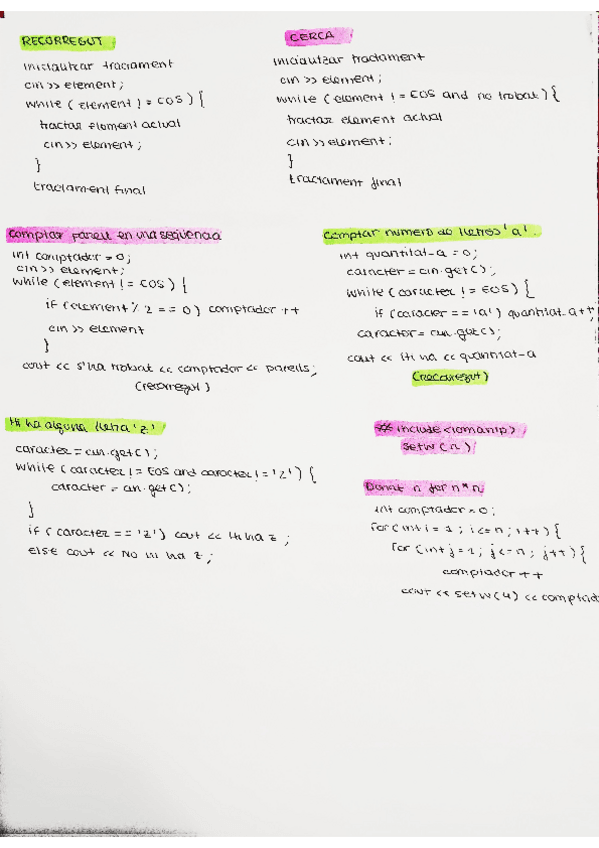 RECORREGUT
inicialitzar tractament
cin >> element;
while (element != EOS) {
tractar element actual
cin >> element;
}
tractament final
CERCA
inicialitzar tractament
cin >> element;
while (element != EOS and no trobat) {
tractar element actual
cin >> element;
}
tractament final
Comptar parell en una seqüencia
int comptador = 0;
cin >> element;
while (element != EOS) {
if (element % 2 == 0) comptador ++
cin >> element
}
cout << s'ha trobat << comptador << parells;
(recorregut)
Comptar numero de lletres 'a'.
int quantitat-a = 0;
caracter = cin.get();
while (caracter != EOS) {
if (caracter == 'a') quantitat-a++;
caracter = cin.get();
cout << Hi ha << quantitat-a
(recorregut)
Hi ha alguna lletra 'z'
caracter = cin.get();
while (caracter != EOS and caracter != 'z') {
caracter = cin.get();
}
if (caracter == 'z') cout << Hi ha z;
else cout << No hi ha z;
# include <iomanip>
setw(n)
Donat n fer n*n
int comptador = 0;
for (int i = 1; i <= n; i++) {
for (int j = 1; j <= n; j++) {
comptador ++
cout << setw(4) << comptad